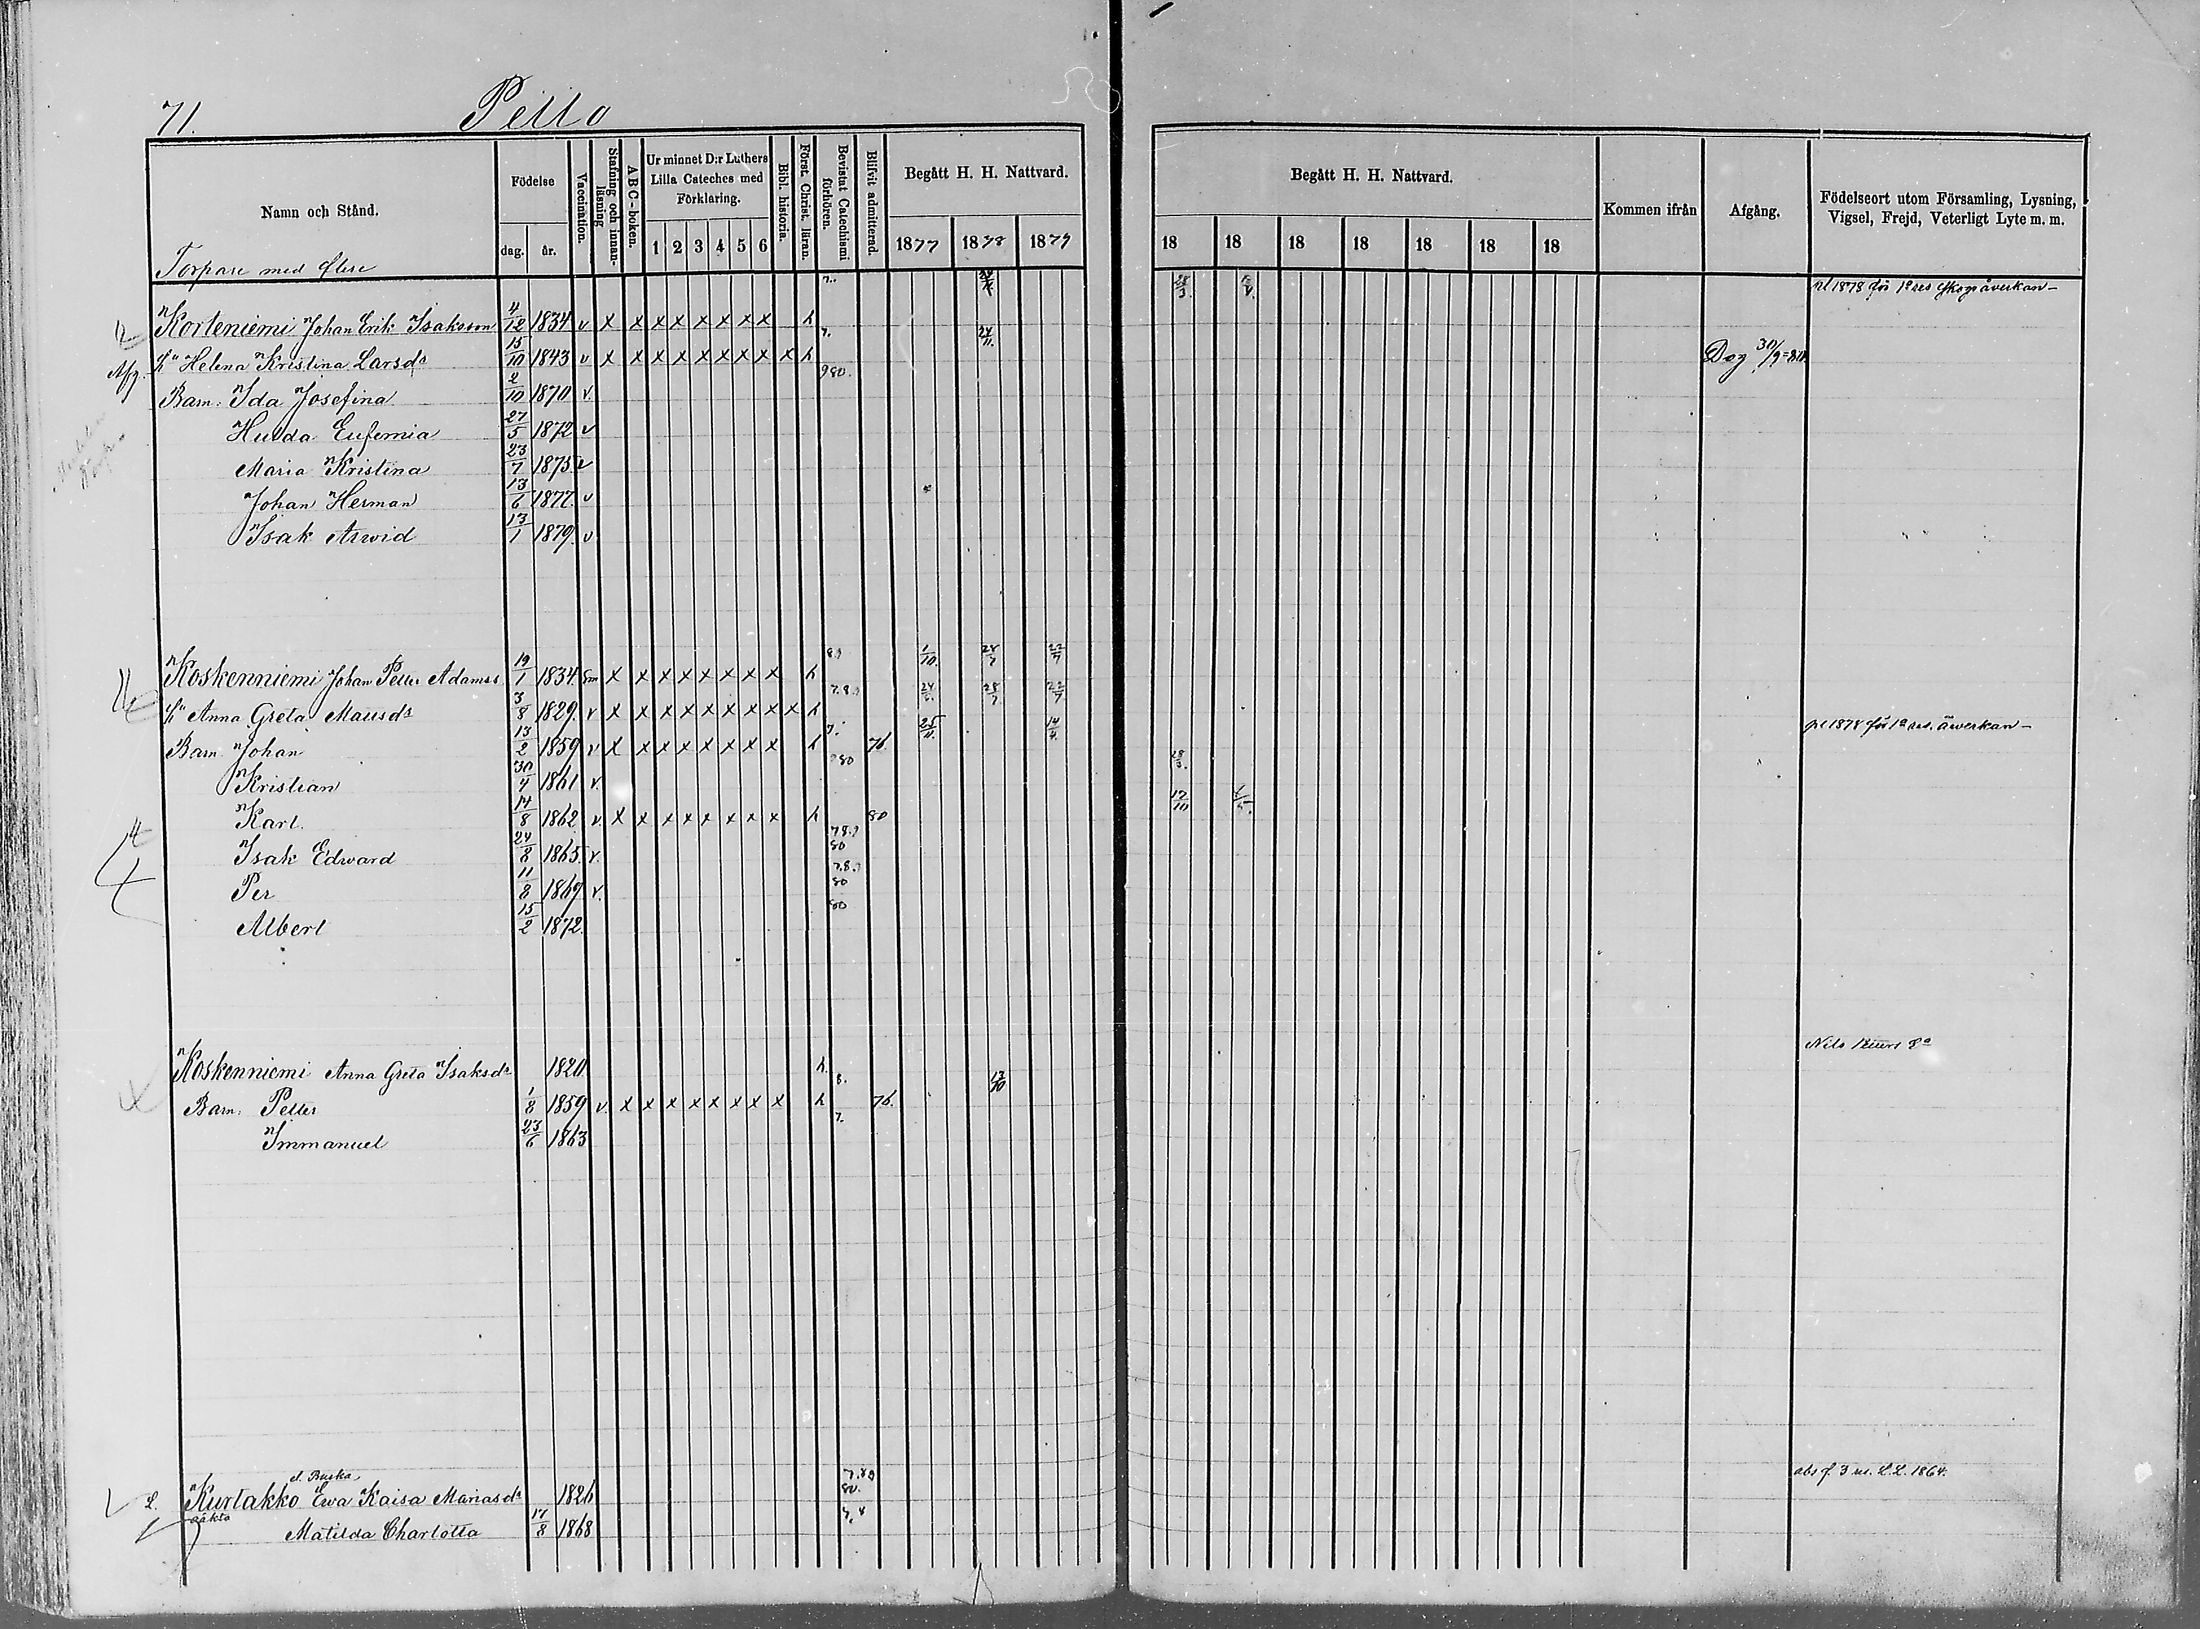 71.
Pello
Namn och Stånd.
Födelse
dag.
år.
Vaccination.
Stafning och innanläsning
ABC-boken.
Ur minnet D:r Luthers Lilla Cateches med Förklaring.
1 2 3 4 5 6
Bibl. historia.
Först. Christ. läran.
Bevistat Catechismi förhören.
Blifvit admitterad.
Begått H. H. Nattvard.
1877 1878 1879
Begått H. H. Nattvard.
18 18 18 18 18 18 18
Kommen ifrån
Afgång.
Födelseort utom Församling, Lysning, Vigsel, Frejd, Veterligt Lyte m. m.
Torpare med flere
Korteniemi Johan Erik Isaksson 4/12 1834 v x x x x x x x x h 7. 24/11 28/3. 1878 för 1a res Skogsåverkan-
Afg. hu Helena Kristina Larsdr 15/10 1843 v x x x x x x x x x h 7. 24/11. 30/9
Barn: Ida Josefina 2/10 1870 v. 980.
Hulda Eufemia 27/5 1872 v
Maria Kristina 23/7 1875 v
Johan Herman 13/6 1877. v
Isak Arwid 13/1 1879. v
Koskenniemi Johan Petter Adamss 19/1 1834. x x x x x x x x h 1/10. 28/7 22/7
hu Anna Greta Mausdr 3/8 1829. v x x x x x x x x x h 7.8.9 28/7 22/7
Barn Johan 13/2 1859 v x x x x x x x x h 7. 76. 25/11. 14/4. 1878 för 1a res. åwerkan-
Kristian 30/4 1861 v. 80 28/3.
Karl. 14/8 1862 v. x x x x x x x x h 80 17/10
Isak Edward 24/8 1865. v. 7 8.9 80
Per 11/8 1869 v. 7.8.9 80
Albert 15/2 1872. 80
Koskenniemi Anna Greta Isaksdr 1820 h. Nils
Barn: Petter 1/8 1859 v. x x x x x x x x h 8. 76. 13/10
Immanuel 23/6 1863 7.
Kurtakko Ewa Kaisa Mariasdr 1826 7.89 80. abs f. 3 L.L. 1864.
oäkta Matilda Charlotta 17/8 1868